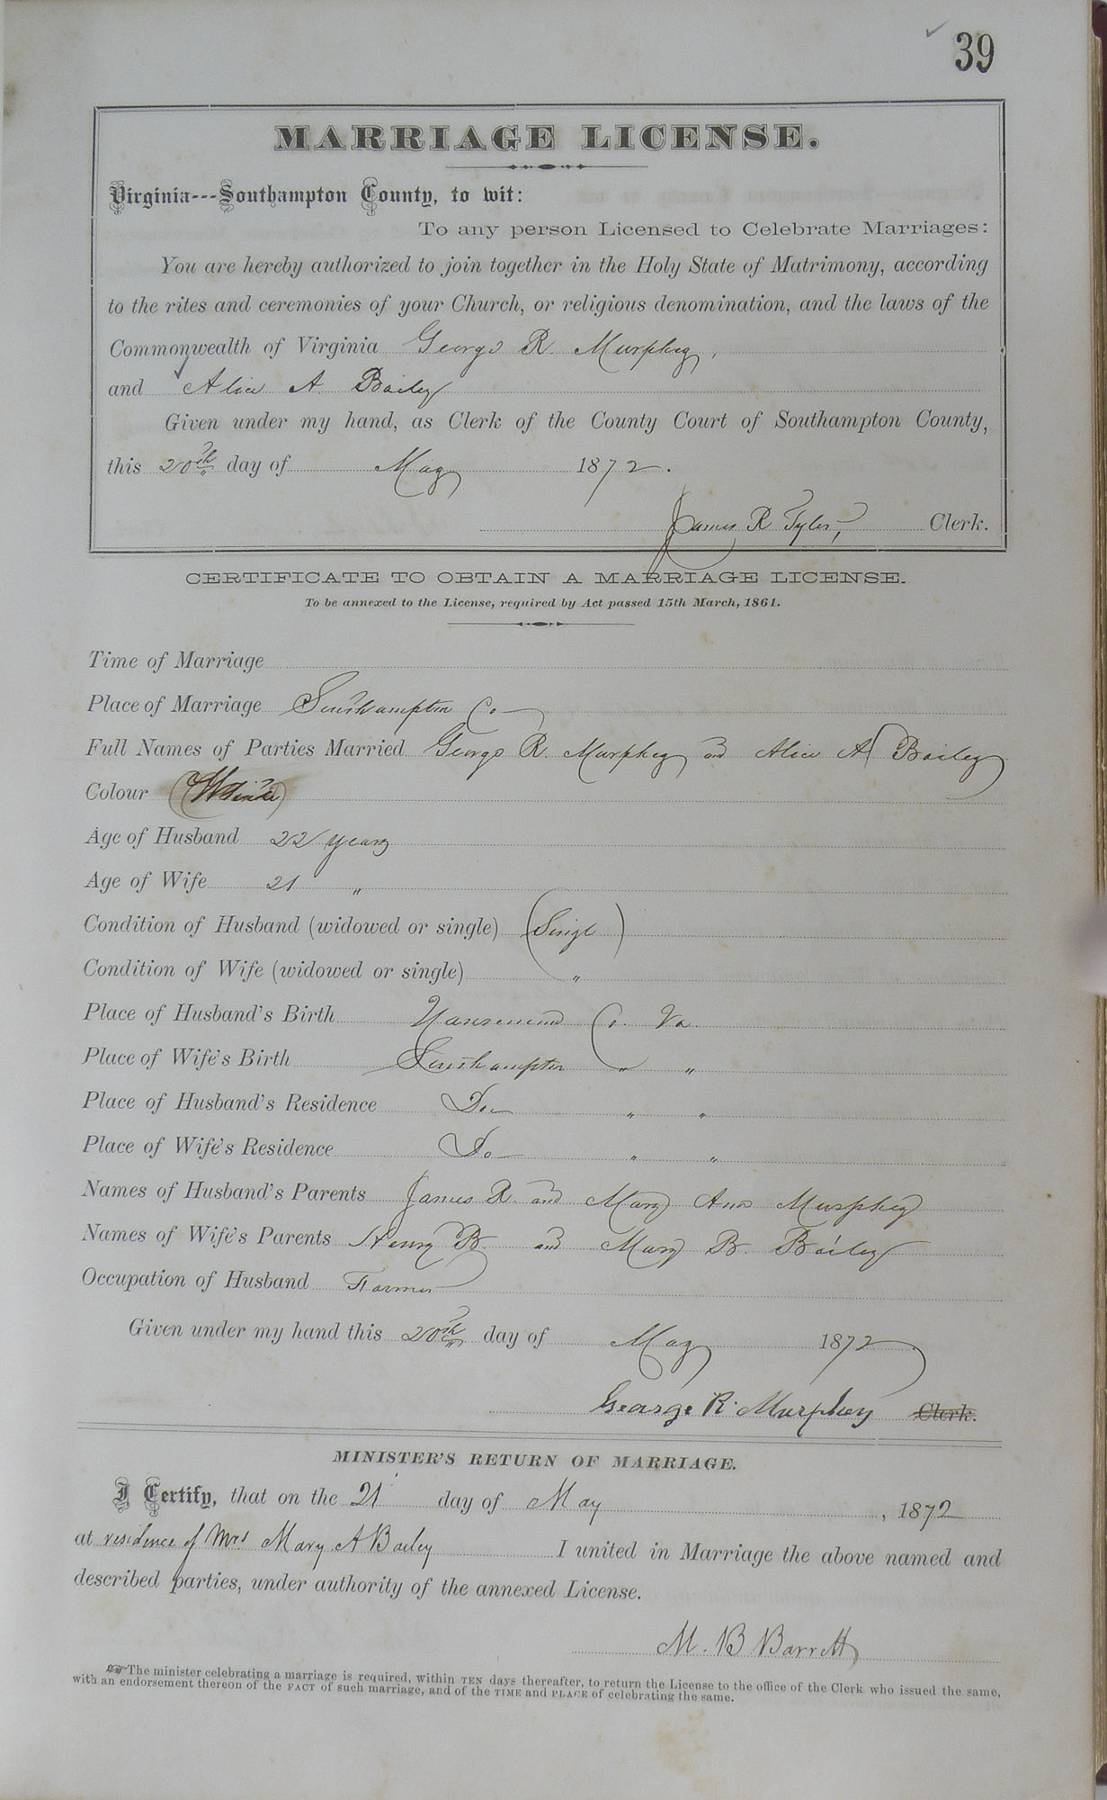 39
MARRIAGE LICENSE.
Virginia---Southampton County, to wit:
To any person Licensed to Celebrate Marriages:
You are hereby authorized to join together in the Holy State of Matrimony, according
to the rites and ceremonies of your Church, or religious denomination, and the laws of the
Commonwealth of Virginia George R. Murphey,
and Alice A. Bailey
Given under my hand, as Clerk of the County Court of Southampton County,
this 20th day of May 1872.
James R Tyler, Clerk.
CERTIFICATE TO OBTAIN A MARRIAGE LICENSE.
To be annexed to the License, required by Act passed 15th March, 1861.
Time of Marriage
Place of Marriage Southampton Co
Full Names of Parties Married George R. Murphey and Alice A Bailey
Colour (White)
Age of Husband 22 years
Age of Wife 21 "
Condition of Husband (widowed or single) (Single)
Condition of Wife (widowed or single) "
Place of Husband's Birth Nansemond Co. Va.
Place of Wife's Birth Southampton " "
Place of Husband's Residence Do " "
Place of Wife's Residence Do " "
Names of Husband's Parents James R. and Mary Ann Murphey
Names of Wife's Parents Henry B. and Mary B. Bailey
Occupation of Husband Farmer
Given under my hand this 20th day of May 1872.
George R. Murphey Clerk.
MINISTER'S RETURN OF MARRIAGE.
I Certify, that on the 21 day of May, 1872
at residence of Mrs Mary A Bailey I united in Marriage the above named and
described parties, under authority of the annexed License.
M. B Barrett
☞The minister celebrating a marriage is required, within TEN days thereafter, to return the License to the office of the Clerk who issued the same,
with an endorsement thereon of the FACT of such marriage, and of the TIME and PLACE of celebrating the same.